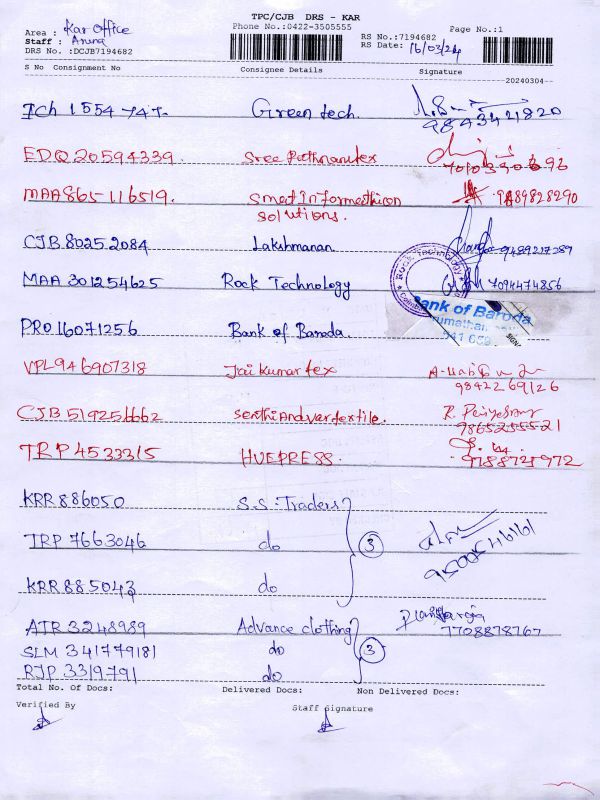 TPC/CJB DRS - KAR
Phone No.:0422-3505555
Page No.:1
Area : Kar Office
Staff : Aruna
DRS No. :DCJB7194682
RS No.:7194682
RS Date: 16/03/24
S No Consignment No Consignee Details Signature
20240304
Ich 1554747. Green tech. 9843421820
EDQ 20594339. Sree Pathmanutex
MAA865116519. Smart informathicon 9489828290
solutions.
CJB 80252084 Lakshmanan 9489217289
MAA 301254625 Rock Technology 7094474856
Rock Technology
PRO16071256 Bank of Baroda.
Bank of Baroda
VPL946907318 Jaikumar tex
9842269126
CJB519251662 senthilAndvartextile. R. Periyasamy
9865255521
TRP4533315 HUEPRESS. 9788721972
KRR 886050 S.S. Traders
TRP 7663046 do 3
KRR885043 do
ATR 3248989 Advance clothing
7708878767
SLM 341779181 do 3
RJP 3319791 do
Total No. Of Docs: Delivered Docs: Non Delivered Docs:
Verified By Staff Signature